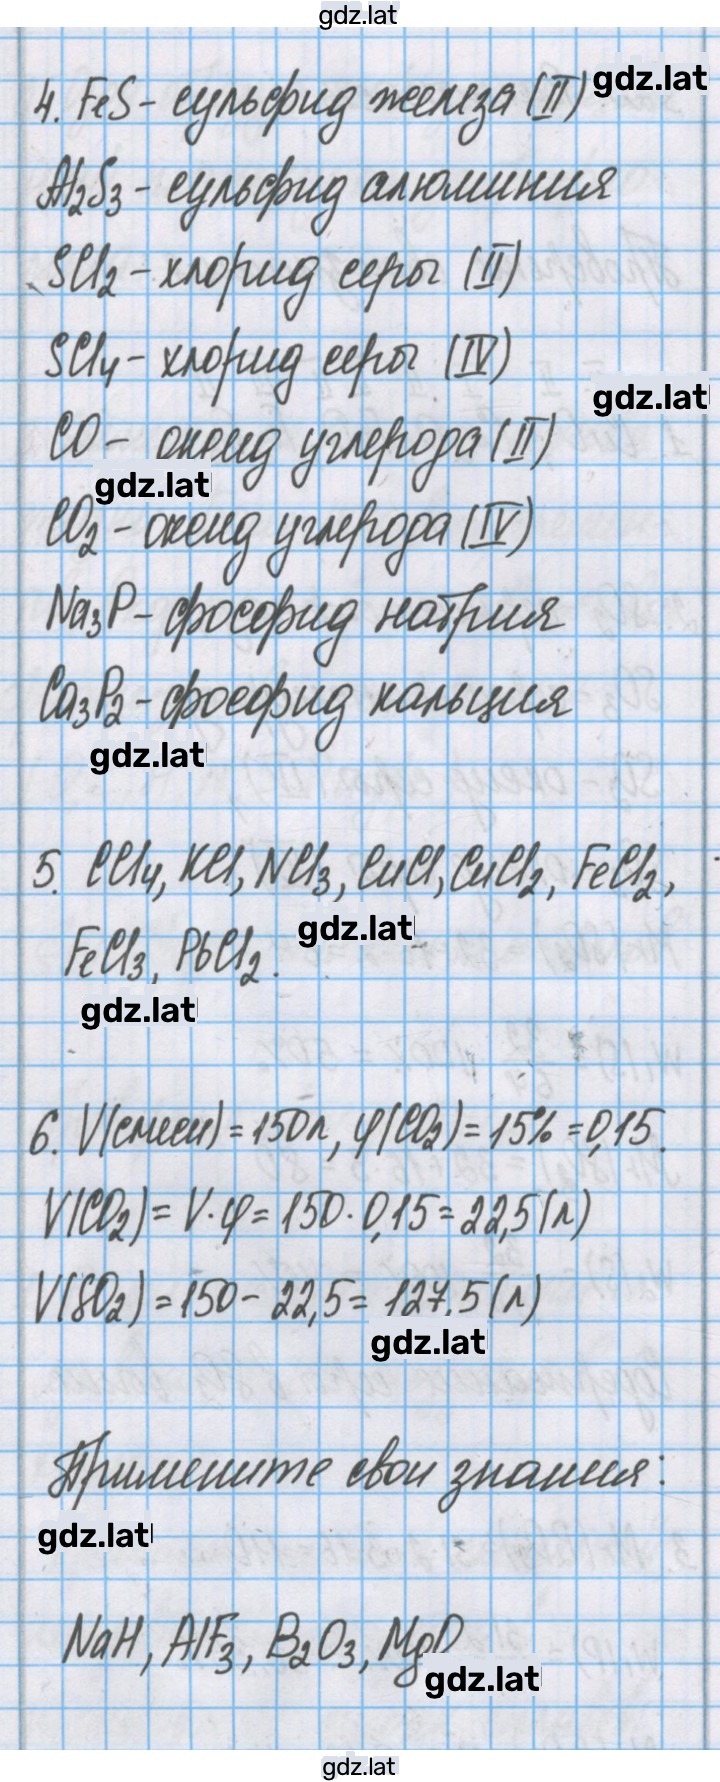 gdz.lat
4. FeS - сульфид железа (II)
gdz.lat
Al2S3 - сульфид алюминия
SCl2 - хлорид серы (II)
SCl4 - хлорид серы (IV)
gdz.lat
CO - оксид углерода (II)
gdz.lat
CO2 - оксид углерода (IV)
Na3P - фосфид натрия
Ca3P2 - фосфид кальция
gdz.lat
5. CCl4, KCl, NCl3, CuCl, CuCl2, FeCl2,
gdz.lat
FeCl3, PbCl2.
gdz.lat
6. V(смеси) = 150л, φ(CO2) = 15% = 0,15.
V(CO2) = V·φ = 150·0,15 = 22,5 (л)
V(SO2) = 150 - 22,5 = 127,5 (л)
gdz.lat
Примените свои знания:
gdz.lat
NaH, AlF3, B2O3, MgO
gdz.lat
gdz.lat